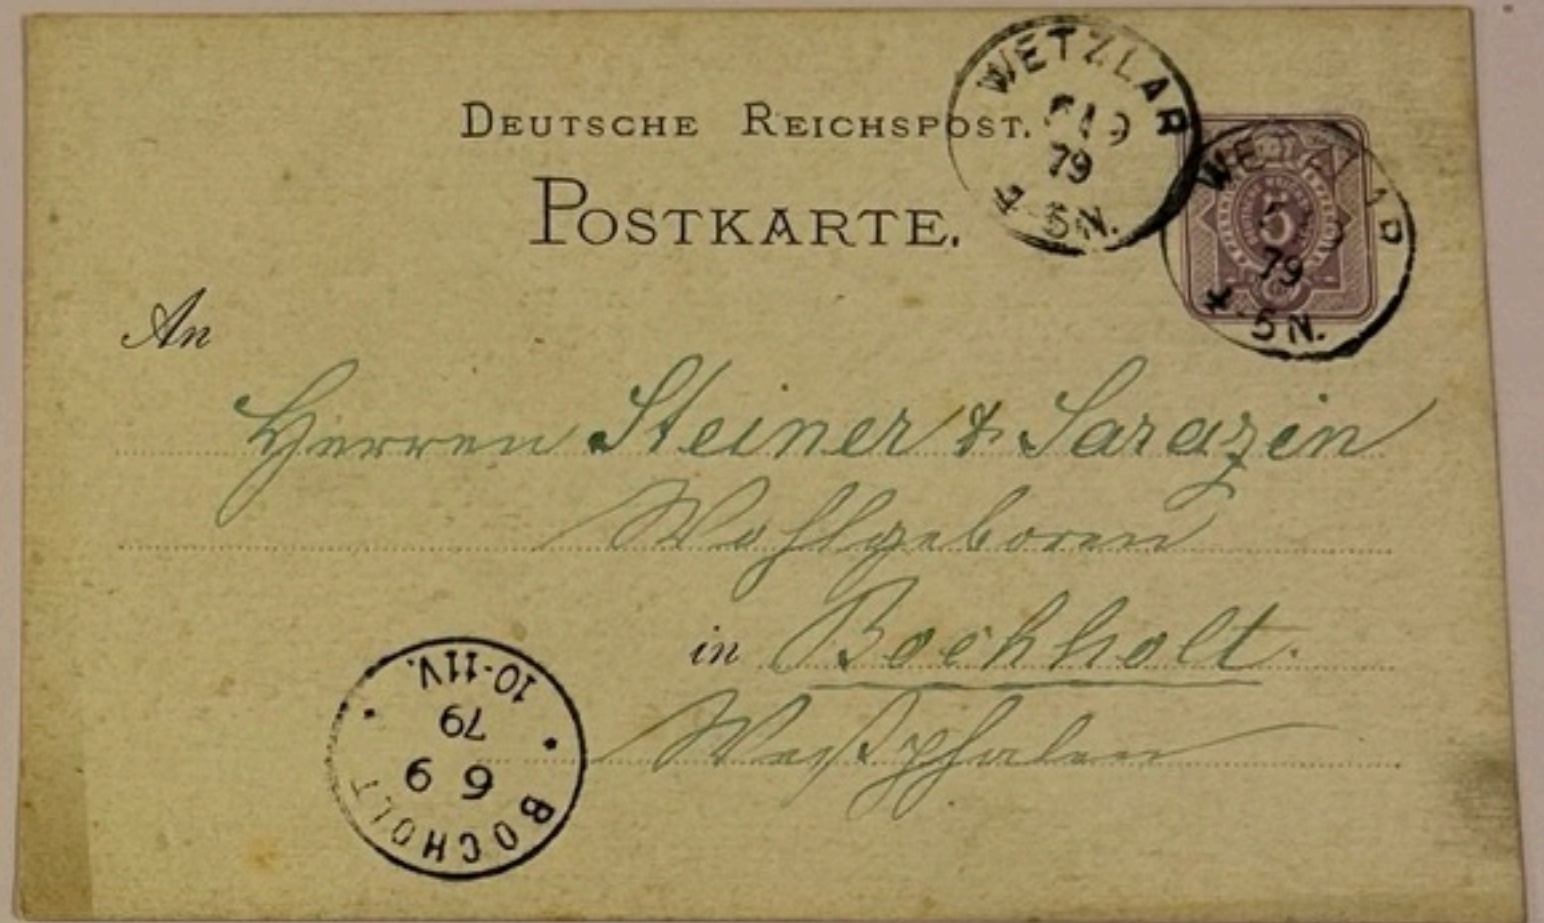 DEUTSCHE REICHSPOST.
POSTKARTE.
WETZLAR
9
79
4-5N.
WETZLAR
5 9
79
4-5N.
5
An
Herren Steiner & Sarazin
Wohlgeboren
in Bochholt.
Westphalen
BOCHOLT
6 9
79
10-11V.